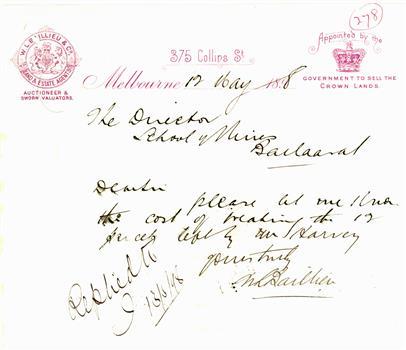 278
W.L. BAILLIEU & Co
LAND & ESTATE AGENTS
AUCTIONEER &
SWORN VALUATORS.
375 Collins St.
Appointed by the
GOVERNMENT TO SELL THE
CROWN LANDS.
Melbourne 12 May 1898
The Director
School of Mines
Ballaarat
Dear Sir please let me know
the cost of treating the 12
parcels left by Mr Harvey
yours truly
WL Baillieu
Replied to
13/5/98